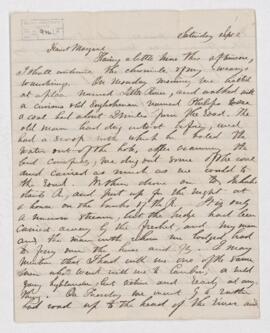 Saturday Sept 2
Dearest Margaret
Having a little time this afternoon,
I shall continue the chronicle of my weary
wanderings. On Monday morning we halted
at a place named Little River, and walked with
a curious old Englishman named Philips to see
a coal bed about 2 miles from the road. The
old man had dug a pit before, and
had a scoop with which he bailed the
water out of the hole, after examining the
bed carefully, we dug out some of the coal
and carried as much as we could to
the road. We then drove on to
and put up for the night at
a house on the banks of the R. It is only
a narrow stream, but the bridge had been
carried away by the freshet, and my man
and the man with whom we lodged had
to ferry over the horse and gig. I may
mention that I had with me one of the same
men which went with me to Cumb, a wild
highlandman, but active and ready at any
thing. On Tuesday we went by a very
bad road up to the head of the river and